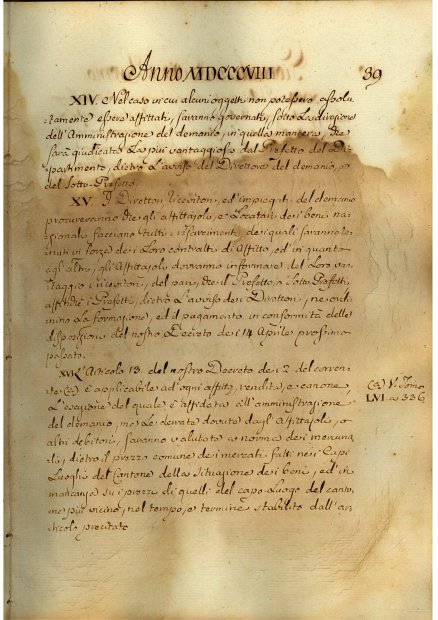 Anno MDCCCVIII
39
XIV. Nel caso in cui alcuni oggetti non potessero assolu-
tamente essere affittati, saranno governati, sotto la direzione
dell'Amministrazione del demanio, in quella maniera, che
sarà giudicata la più vantaggiosa dal Prefetto del Di-
partimento, dietro l'avviso del Direttore del demanio, o
del Sotto-Prefetto.
XV. I Direttori, Ricevitori, ed impiegati del demanio
procureranno che gli affittajoli, e Locatari dei beni na-
zionali facciano tutti i risarcimenti dei quali saranno te-
nuti in forza dei Loro contratti di Affitto, ed in quanto
agli altri, gli Affittajoli dovranno informare del Loro van-
taggio i ricevitori, del pari, che il Prefetto, o Sotto Prefetti,
affinchè i Prefetti, dietro l'avviso dei Direttori, ne ordi-
nino La formazione, ed il pagamento in conformità delle
disposizioni del nostro Decreto dei 14 Aprile prossimo
passato.
XVI. L'Articolo 13. del nostro Decreto dei 2 del corren-
te (a) è applicabile ad ogni affitto, rendita, e canone,
L'esazione del quale è affidata all'amministrazione
del demanio, ma Le derrate dovute dagli Affittajoli, o
altri debitori, saranno valutate a norma dei mercuria-
li, dietro il prezzo comune dei mercati fatti nei Capi
Luoghi del Cantone della Situazione dei beni, ed in
mancanza sui prezzi di quelli del capo Luogo del canto-
ne più vicino, nel tempo, e termine stabilito dall'ar-
ticolo precitato.
(a) V. Tomo
LVI. a 336